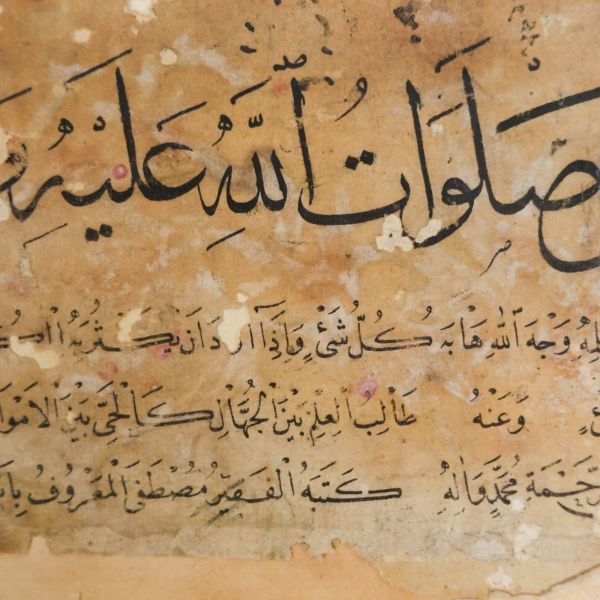 صَلَوَاتُ اللَّهِ عَلَيْهِ
وَجْهَ اللّٰهِ هَابَهُ كُلُّ شَئٍ وَاِذَا اَرَادَ اَنْ يَكْثُرَ بِهِ
وَعَنْهُ طَالِبُ الْعِلْمِ بَيْنَ الْجُهَّالِ كَالْحَىِّ بَيْنَ
مُحَمَّدٍ وَاٰلِهِ كَتَبَهُ الْفَقِيرُ مُصْطَفَى الْمَعْرُوفُ